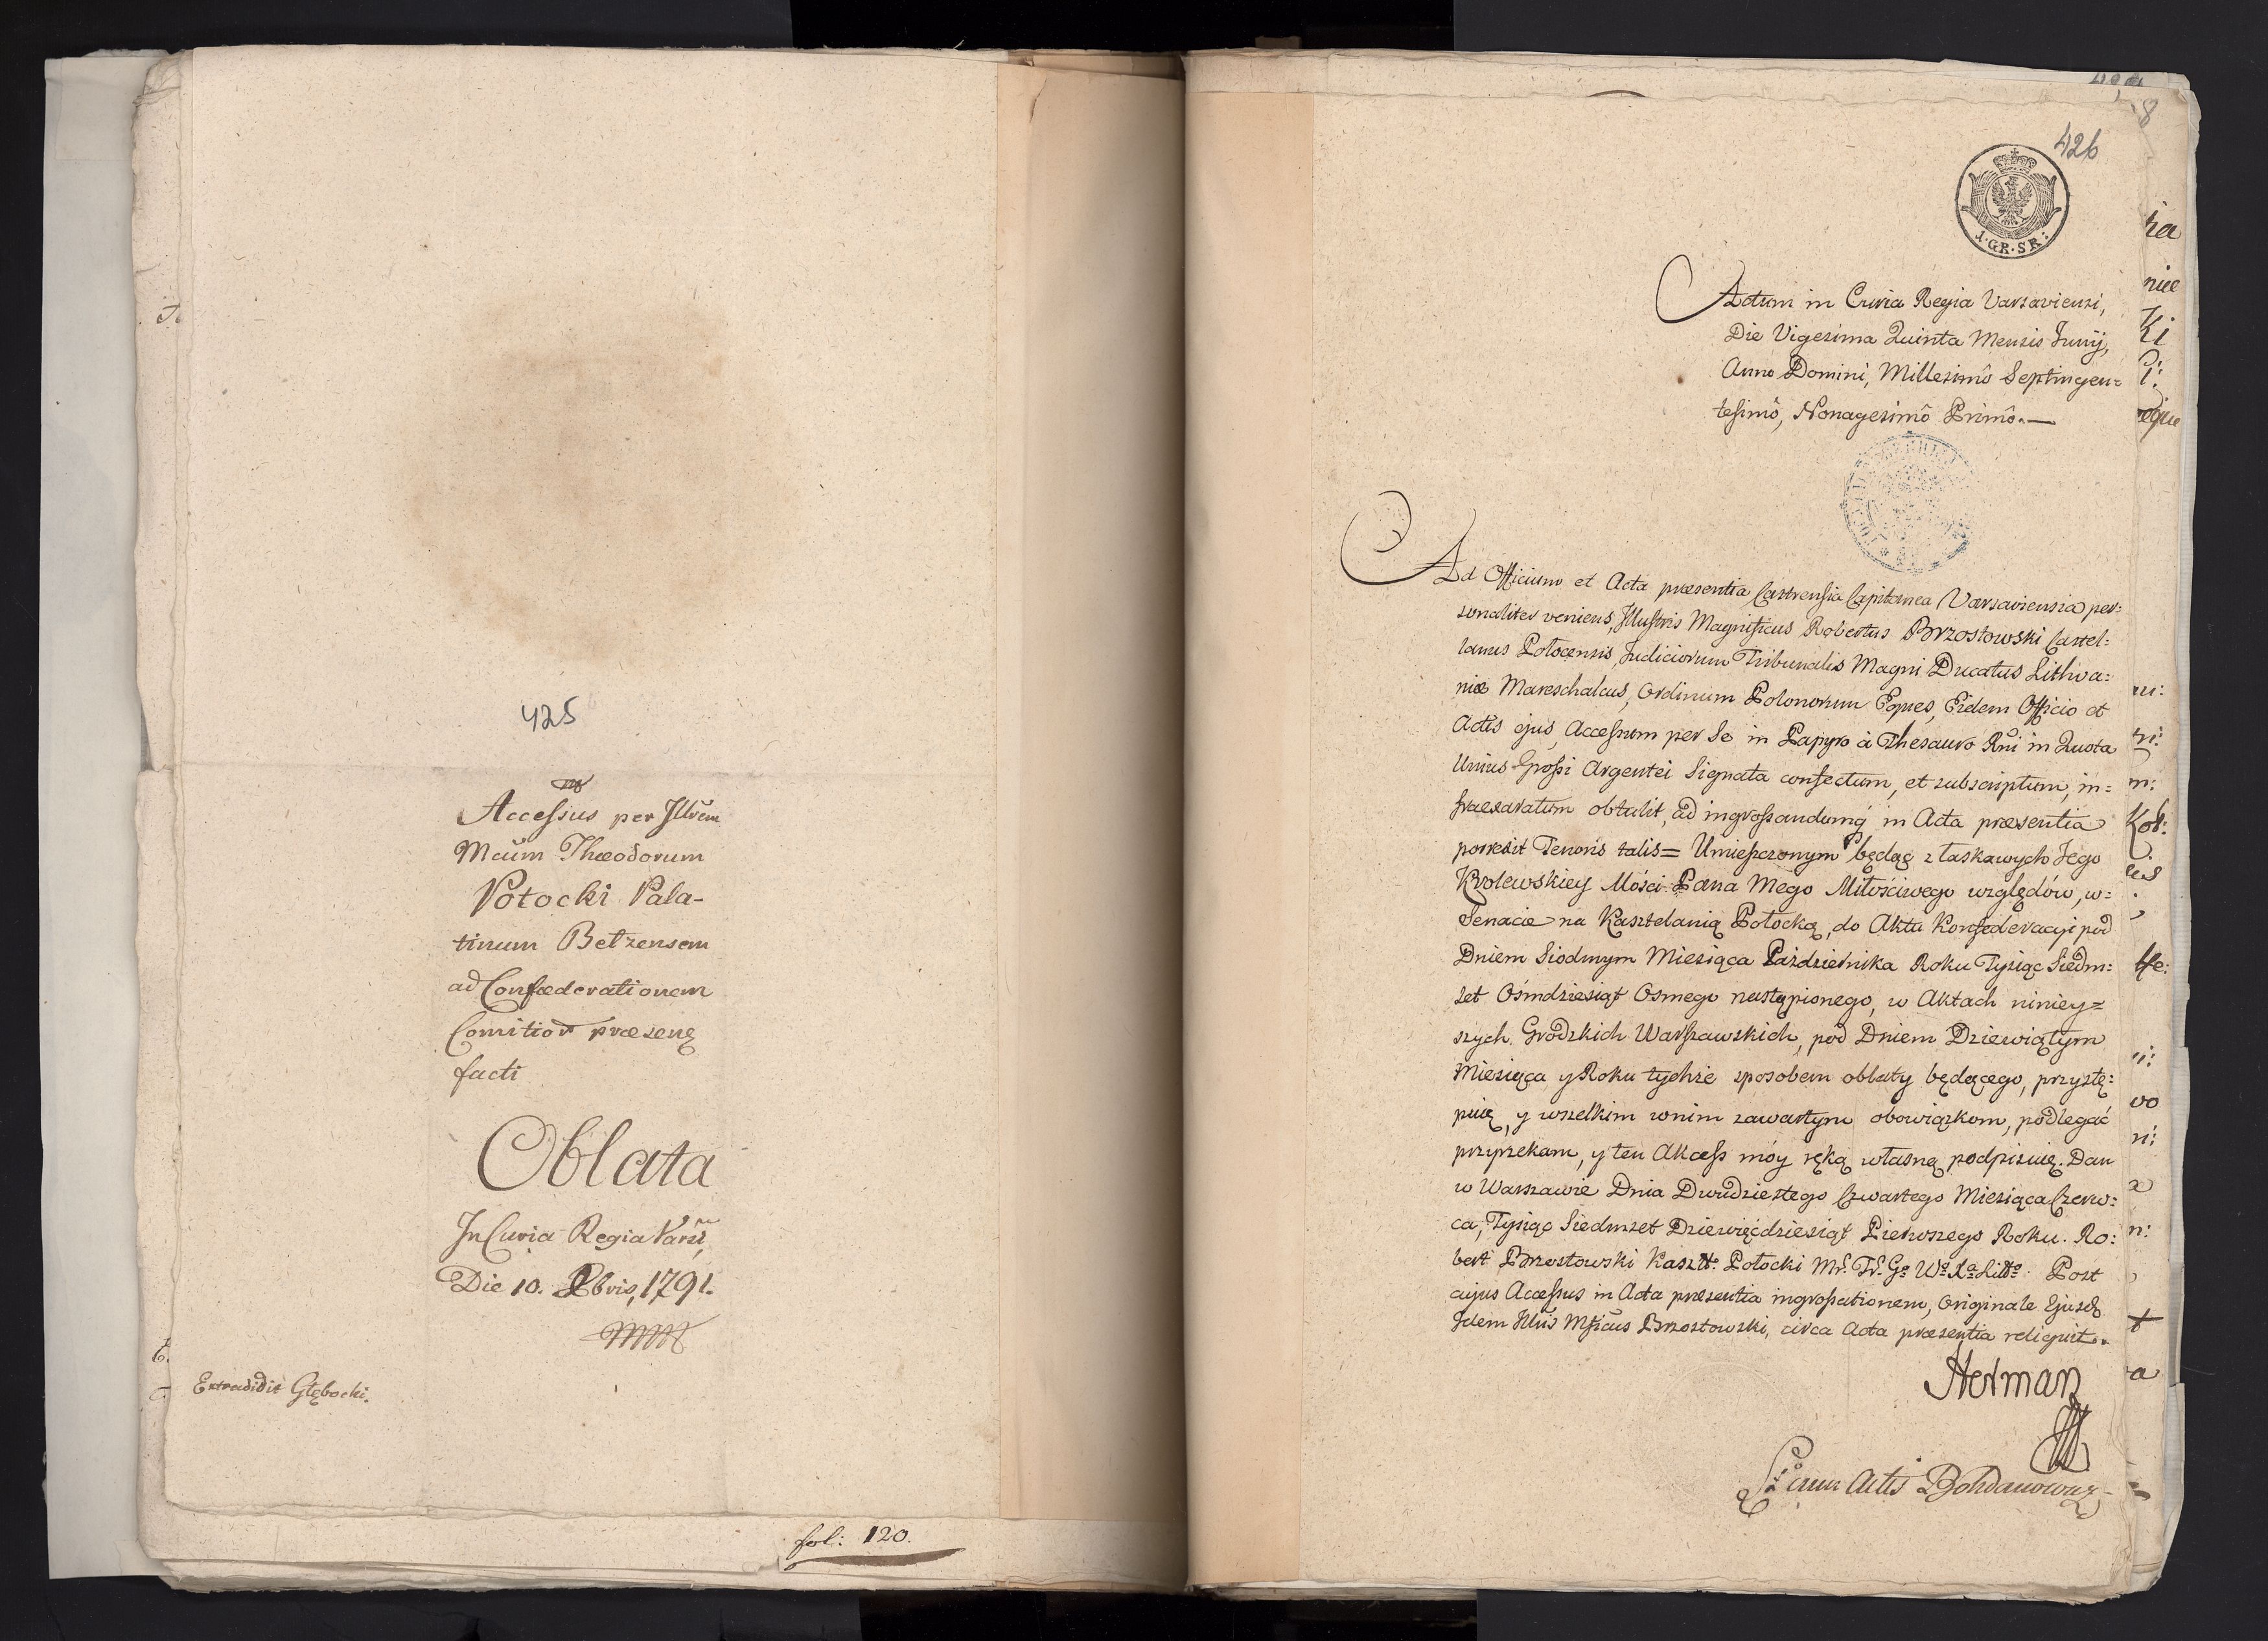 425
Accessus per Illrem
Mcum Theodorum
Potocki Pala-
tinum Betzensem
ad Confœderationem
Comitior præsenę
facti
Oblata
In Curia Regia Varsi
Die 10. Xbris, 1791.
Extradidit Głębocki.
fol: 120.
426
1·GR·SR:
Actum in Curia Regia Varsaviensi,
Die Vigesima Quinta Mensis Junij,
Anno Domini, Millesimô Septingen=
tesimô, Nonagesimô Primô.—
Ad Officium et Acta præsentia Castrensia Capitanea Varsaviensia per=
sonaliter veniens, Illustris Magnificus Robertus Brzostowski Castel=
lanus Połocensis, Judiciorum Tribunalis Magni Ducatus Lithva=
niæ Mareschalcus, Ordinum Polonorum Eques, Eidem Officio et
Actis ejus, Accessum per Se in Papyro à Thesauro Rni in Quota
Unius Grossi Argentei Signata confectum, et subscriptum, in=
fraexaratum obtulit, ad ingrossandumq in Acta præsentia
porrexit Tenoris talis= Umieszczonym będąc z łaskawych Jego
Krolewskiey Mości Pana Mego Miłościwego względów, w=
Senacie na Kasztelanią Połocką, do Aktu Konfederacyi pod
Dniem Siodmym Miesiąca Pazdziernika Roku Tysiąc Siedm=
set Ośmdziesiąt Osmego nastąpionego, w Aktach niniey=
szych Grodzkich Warszawskich, pod Dniem Dziewiątym
Miesiąca y Roku tychże sposobem oblaty będącego, przystę=
puię, y wszelkim w nim zawartym obowiązkom, podlegać
przyrzekam, y ten Akcess móy ręką własną podpisuię. Dan
w Warszawie Dnia Dwudziestego Czwartego Miesiąca Czerw=
ca, Tysiąc Siedmset Dziewięćdziesiąt Pierwszego Roku. Ro=
bert Brzostowski Kasztt: Połocki Mr. Tr. Go Wo Xa Litto. Post
cujus Accessus in Acta præsentia ingrossationem, Originale Ejusd
Idem Illris Mficus Brzostowski, circa Acta præsentia reliquit.
Herman
cum Actis Bohdanowicz